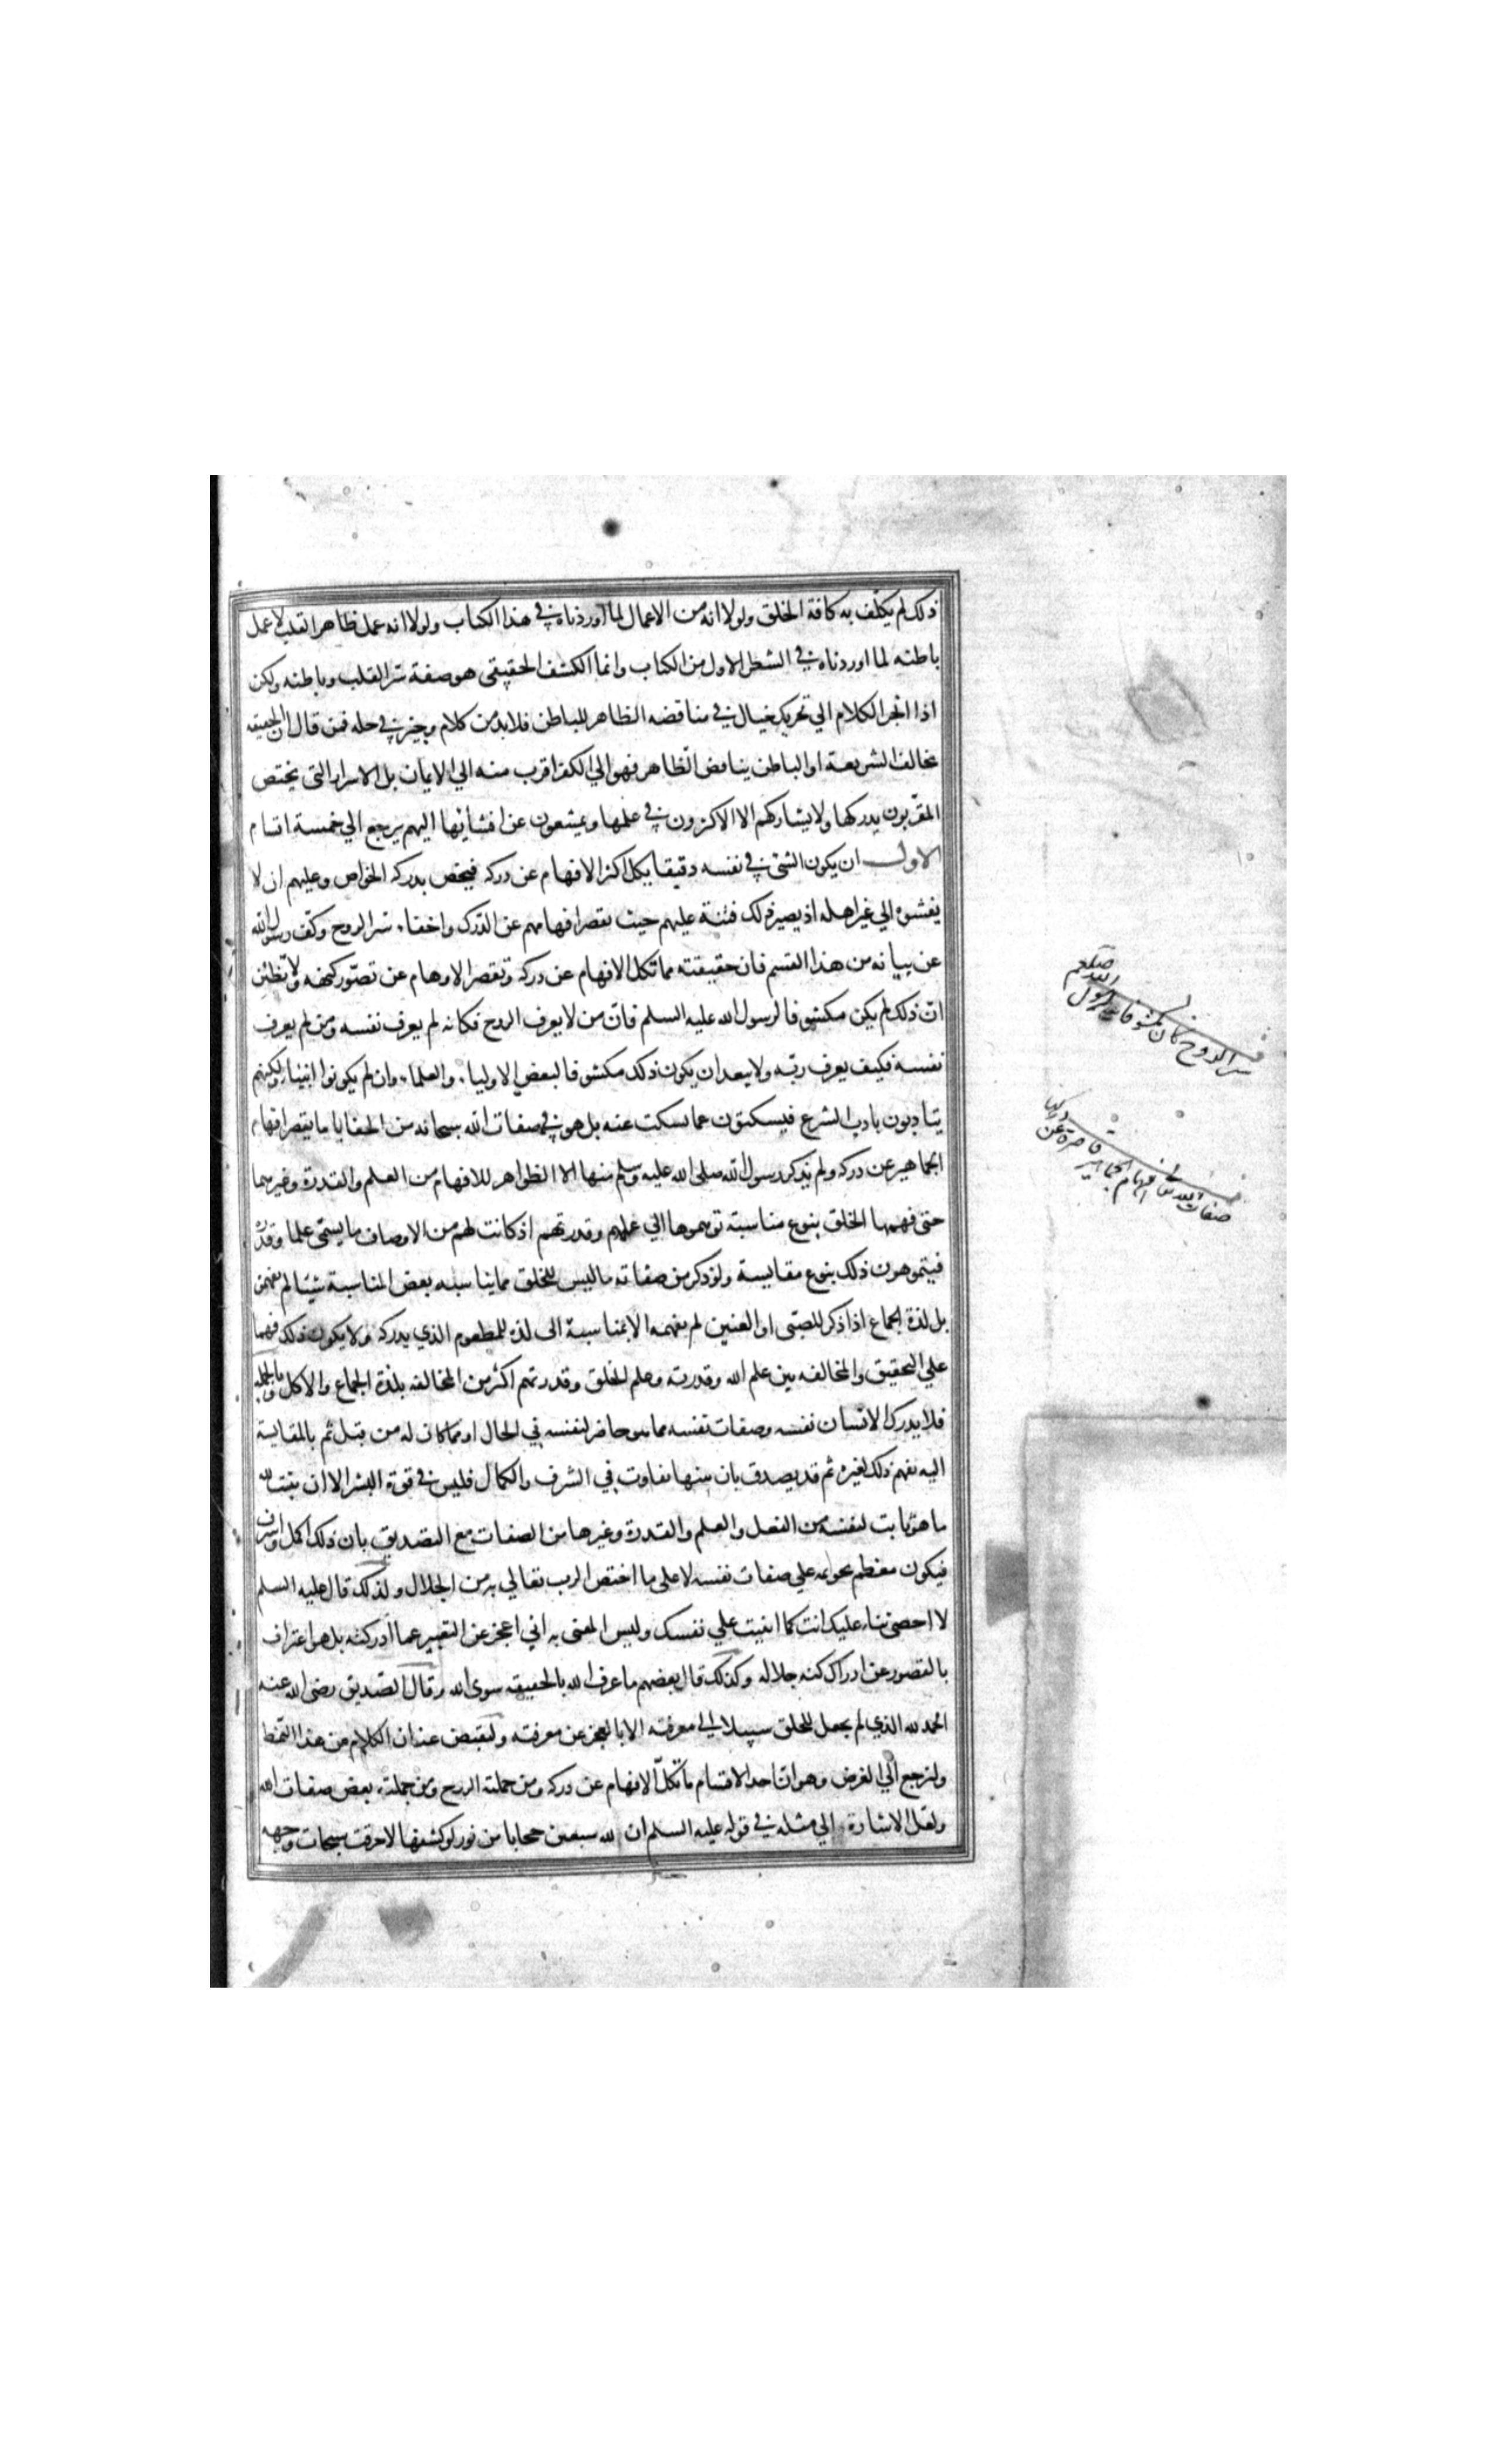 ذلك لم يكلّف به كافة الخلق ولولا انه من الاعمال لما اوردناه في هذا الكتاب ولولا انه عمل ظاهر القلب لا عمل
باطنه لما اوردناه في الشطر الاول من الكتاب وانما الكشف الحقيقي هو صفة سر القلب وباطنه ولكن
اذا انجر الكلام الي تحريك خيال في مناقضه الظاهر للباطن فلابد من كلام وجيز في حله فمن قال ان الحقيقه
تخالف الشريعة او الباطن يناقض الظاهر فهو الي الكفر اقرب منه الي الايمان بل الاسرار التي يختص
المقربون بدركها ولا يشاركهم الا الاكثرون في علمها ويمتنعون عن افشائها اليهم يرجع الي خمسة اقسام
الاول ان يكون الشئ في نفسه دقيقا يكل اكثر الافهام عن دركه فيختص بدركه الخواص وعليهم ان لا
يفشوه الي غير اهله اذ يصير ذلك فتنة عليهم حيث تقصر افهامهم عن الدرك واخفاء سر الروح وكف رسول الله
عن بيانه من هذا القسم فان حقيقته مما تكل الافهام عن دركه وتقصر الاوهام عن تصور كنهه ولا تظنن
ان ذلك لم يكن مكشوفا لرسول الله عليه السلم فان من لا يعرف الروح فكانه لم يعرف نفسه ومن لم يعرف
نفسه فكيف يعرف ربه ولا يبعد ان يكون ذلك مكشوفا لبعض الاولياء والعلماء وان لم يكونوا انبياء ولكنهم
يتادبون باداب الشرع فيسكتون عما سكت عنه بل هو في صفات الله سبحانه من الخفايا ما يقصر افهام
الجماهير عن دركه ولم يذكر رسول الله صلى الله عليه وسلم منها الا الظواهر للافهام من العلم والقدرة وغيرهما
حتى فهمها الخلق بنوع مناسبة توهموها الي علمهم وقدرتهم اذ كانت لهم من الاوصاف ما يسمى علما وقدرة
فيتوهمون ذلك بنوع مقايسة ولو ذكر من صفاته ما ليس للخلق مما يناسبه بعض المناسبة شيئا لم يفهموه
بل لذة الجماع اذا ذكر للصبى او العنين لم يفهمه الا بمناسبة الى لذة المطعوم الذي يدركه ولا يكون ذلك فهما
علي التحقيق والمخالفه بين علم الله وقدرته وعلم الخلق وقدرتهم اكثر من المخالفه بلذة الجماع والاكل وبالجمله
فلا يدرك الانسان نفسه وصفات نفسه مما هو حاضر لنفسه في الحال او مما كان له من قبل ثم بالمقايسة
اليه يفهم ذلك لغيره ثم قد يصدق بان بينها تفاوت في الشرف والكمال فليس في قوة البشر الا ان يثبت لله
ما هو ثابت لنفسه من الفعل والعلم والقدرة وغيرها من الصفات مع التصديق بان ذلك اكمل واشرف
فيكون معظم تحويمه علي صفات نفسه لا على ما اختص الرب تعالي به من الجلال ولذلك قال عليه السلم
لا احصى ثناء عليك انت كما اثنيت علي نفسك وليس المعنى به اني اعجز عن التعبير عما ادركته بل هو اعتراف
بالقصور عن ادراك كنه جلاله وكذلك قال بعضهم ما عرف الله بالحقيقه سوى الله وقال الصديق رضى الله عنه
الحمد لله الذي لم يجعل للخلق سبيلا الى معرفته الا بالعجز عن معرفته ولنقبض عنان الكلام من هذا النمط
ولنرجع الي الغرض وهو ان احد الاقسام ما تكل الافهام عن دركه ومن جملته الروح ومن جملته بعض صفات الله
ولعل الاشارة الي مثله في قوله عليه السلم ان لله سبعين حجابا من نور لو كشفها لاحرقت سبحات وجهه
سر الروح كان مكشوفا لرسول الله صلعم
صفات الله تعالى افهام الجماهير قاصرة عن دركها